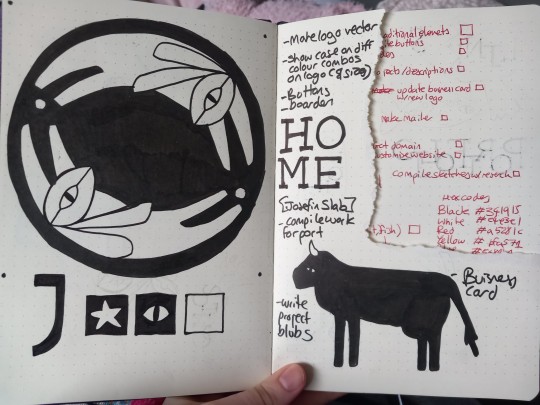 J
- Make logo vector
- show case on diff
colour combos
on logo (& size)
- Buttons
- boarder
HO
ME
[Josefin Slab]
- compile work
for port
- write
project
blubs
- Buisness
card
ditional elements
buttons
/descriptions
update business card
w/ new logo
make mailer
domain
customise website
compile sketches w/ research
Hex codes
Black #341915
White
Red #a5281c
Yellow